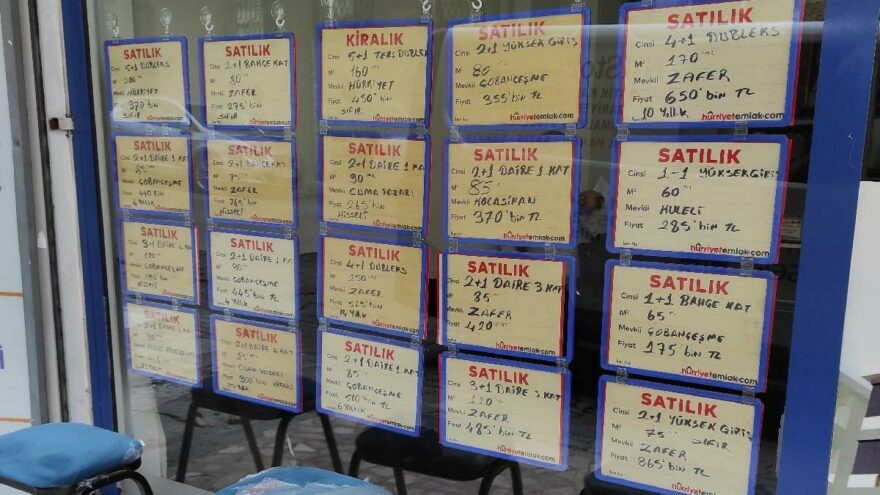 SATILIK
Cinsi 5+1 DUBLEKS
M² 200 m²
Mevkii HÜRRİYET
Fiyat 370 bin
SIFIR
SATILIK
Cinsi 2+1 BAHÇE KAT
M² 80 m²
Mevkii ZAFER
Fiyat 275 bin
SIFIR
KİRALIK
Cinsi 5+1 TERS DUBLEKS
M² 160 m²
Mevkii HÜRRİYET
Fiyat 450 bin
SIFIR
hürriyetemlak.com
SATILIK
Cinsi 2+1 YÜKSEK GİRİŞ
M² 80 m²
Mevkii ÇOBANÇEŞME
Fiyat 355 bin TL
hürriyetemlak.com
SATILIK
Cinsi 4+1 DUBLEKS
M² 170 m²
Mevkii ZAFER
Fiyat 650 bin TL
10 Yıllık
hürriyetemlak.com
SATILIK
2+1 DAİRE 1 KAT
M² 85 m²
Mevkii ÇOBANÇEŞME
Fiyat
4 YILLIK
SATILIK
Cinsi 2+1 BAHÇE KAT
M² 75
Mevkii ZAFER
Fiyat 265 bin
HİSSELİ
SATILIK
Cinsi 2+1 DAİRE 1 KAT
M² 90 m²
Mevkii CUMA PAZARI
Fiyat 265 bin
HİSSELİ
hürriyetemlak.com
SATILIK
Cinsi 2+1 DAİRE 1 KAT
M² 85 m²
Mevkii KOCASİNAN
Fiyat 370 bin TL
hürriyetemlak.com
SATILIK
Cinsi 1-1 YÜKSEK GİRİŞ
M² 60 m²
Mevkii KULELİ
Fiyat 285 bin TL
hürriyetemlak.com
SATILIK
3+1 DAİRE 4 KAT
Mevkii ÇOBANÇEŞME
Fiyat
SATILIK
Cinsi 2+1 DAİRE 1 KAT
M² 90 m²
Mevkii ÇOBANÇEŞME
Fiyat 445 bin TL
4 Yıllık
hürriyetemlak.com
SATILIK
Cinsi 4+1 DUBLEKS
M² 150 m²
Mevkii ZAFER
Fiyat 525 bin
Yıllık
hürriyetemlak.com
SATILIK
Cinsi 2+1 DAİRE 3 KAT
M² 85 m²
Mevkii ZAFER
Fiyat 420 bin
hürriyetemlak.com
SATILIK
Cinsi 1+1 BAHÇE KAT
M² 65 m²
Mevkii ÇOBANÇEŞME
Fiyat 175 bin TL
hürriyetemlak.com
SATILIK
Cinsi
M²
Mevkii
Fiyat
SATILIK
Cinsi 2+1 DAİRE 4 KAT
M² 85 m²
Mevkii CUMA PAZARI
Fiyat 300 bin
hürriyetemlak.com
SATILIK
Cinsi 2+1 DAİRE 1 KAT
M² 85 m²
Mevkii ÇOBANÇEŞME
Fiyat 510 bin TL
6 YILLIK
hürriyetemlak.com
SATILIK
Cinsi 3+1 DAİRE 3 KAT
M² 120 m²
Mevkii ZAFER
Fiyat 485 bin TL
hürriyetemlak.com
SATILIK
Cinsi 2+1 YÜKSEK GİRİŞ
M² 75 m² SIFIR
Mevkii ZAFER
Fiyat 365 bin TL
hürriyetemlak.com